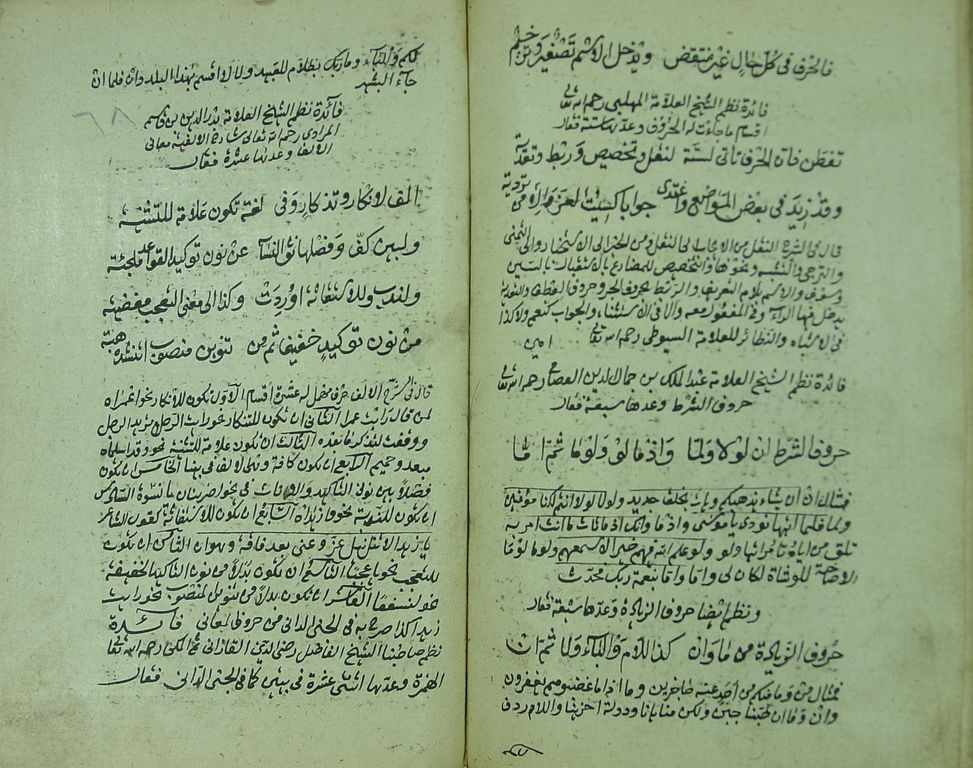 فالحرف في كل حال غير منتقض ويدخل الاسم تصغير
فائدة نظم الشيخ العلامة المهلبي رحمه الله تعالى
اقسام ما جاءت له الحروف وعدها ستة فقال
تفطن فان الحرف تاتي لستة لنقل وتخصيص وربط وتعدية
وقد زيد في بعض المواضع واغتدى جوابا
قال في الشرح النقل من الايجاب الى النفي ومن الخبر الى الاستخبار والى التمني
والترجي والتشبيه ونحوها والتخصيص للمضارع بالاستقبال بالسين
وسوف والاسم بلام التعريف والربط بحروف الجر وحروف العطف والتعدية
يدخل فيها الواو في المفعول معه والا في الاستثناء والجواب كنعم ولا كذا
في الاشباه والنظائر للعلامة السيوطي رحمه الله تعالى امين
فائدة نظم الشيخ العلامة عبد الملك بن جمال الدين العصامي رحمه الله تعالى
حروف الشرط وعدها سبعة فقال
حروف الشرط ان لولا ولما واذما لو ولوما ثم اما
فمثال ان ان يشاء يذهبكم ويات بخلق جديد ولولا لولا انتم لكنا مؤمنين
ولما فلما اتيها نودي يا موسى واذما وانك اذما تات ما انت امر به
تلق من اياه تامر اتيا ولو ولو علم الله فيهم خيرا لاسمعهم ولوما لوما
الاصاخة للوشاة لكان لي واما واما بنعمة ربك فحدث
ونظم ايضا حروف الزيادة وعدها سبعة فقال
حروف الزيادة من ما وان كذا اللام والباء ولا ثم ان
فمثال من وما فما منكم من احد عنه حاجزين وما اذا ما غضبوا هم يغفرون
وان وما ان طبنا جبن ولكن منايانا ودولة اخرينا واللام ردف
لكم والباء وما ربك بظلام للعبيد ولا لا اقسم بهذا البلد وان فلما ان
جاء البشير
فائدة نظم الشيخ العلامة بدر الدين بن قاسم
المرادي رحمه الله تعالى شارح الالفية معاني
الالف وعدها عشرة فقال
الف لانكار وتذكار وفي لغة تكون علامة للتثنية
ولبين كف وفصلها نون النسا عن نون توكيد
ولندب وللاستغاثة اوردت وكذا الى معنى التعجب مفضية
من نون توكيد خفيف ثم من تنوين منصوب
قال في الشرح الالف حرف مهمل له عشرة اقسام الاول تكون للانكار نحو اعمراه
لمن قال رايت عمرا الثاني ان تكون للتذكار نحو رايت الرجلا تريد الرجل
ووقفت لتذكر ما بعده الثالث ان تكون علامة للتثنية نحو وقد اسلماه
مبعد وحميم الرابع ان تكون كافة الخامس ان تكون
فصلا بين نون التاكيد ونون الاناث في نحو اضربنان يا نسوة السادس
ان تكون للندبة نحو وازيداه السابع ان تكون للاستغاثة كقول الشاعر
يا زيدا لامل نيل عز وغنى بعد فاقة وهوان الثامن ان تكون
للتعجب نحو يا عجبا التاسع ان تكون بدلا من نون التاكيد الخفيفة
نحو لنسفعا العاشر ان تكون بدلا من تنوين المنصوب نحو رايت
زيدا كذا صرح به في الجنى الداني من حروف المعاني فائدة
نظم صاحبنا الشيخ الفاضل رضي الدين القازاني ثم المكي رحمه الله تعالى
الهمزة وعدها اثنتي عشرة في بيتين كما في الجنى الداني فقال